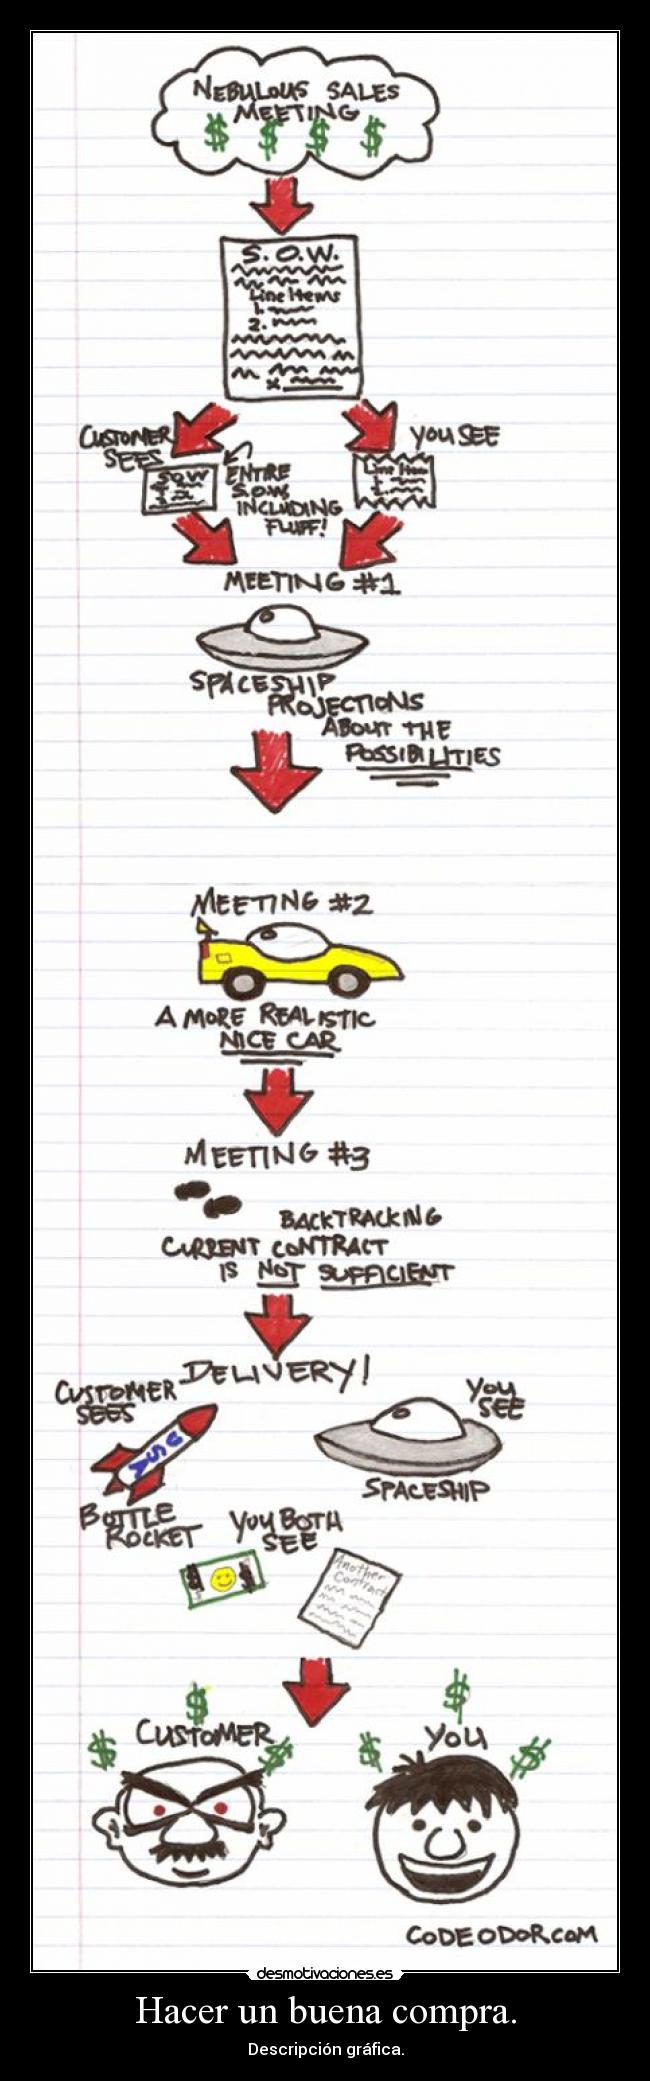 NEBULOUS SALES
MEETING
$ $ $ $
S.O.W.
Line Items
1.
2.
x
CUSTOMER
SEES
YOU SEE
S.O.W
Line Item
ENTIRE
S.O.W.
INCLUDING
FLUFF!
MEETING #1
SPACESHIP
PROJECTIONS
ABOUT THE
POSSIBILITIES
MEETING #2
A MORE REALISTIC
NICE CAR
MEETING #3
BACKTRACKING
CURRENT CONTRACT
IS NOT SUFFICIENT
DELIVERY!
CUSTOMER
SEES
YOU
SEE
SPACESHIP
BOTTLE
ROCKET
YOU BOTH
SEE
$ $
Another
Contract
$ $
CUSTOMER YOU
$ $ $ $
CODEODOR.COM
desmotivaciones.es
Hacer un buena compra.
Descripción gráfica.